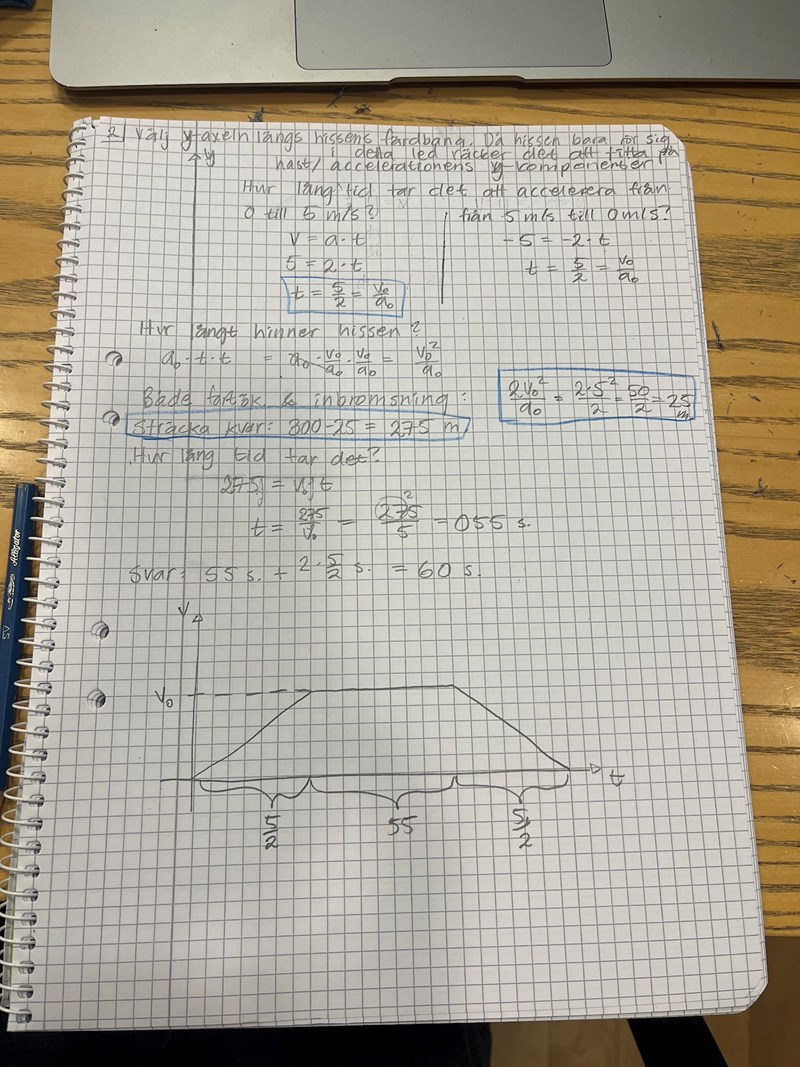 2 Välj y-axeln längs hissens färdbana. Då hissen bara rör sig
y i detta led räcker det att titta på
hast/accelerationens y komponenter
Hur lång tid tar det att accelerera från
0 till 5 m/s?
v = a · t
5 = 2 · t
t = 5/2 = v₀/a₀
från 5 m/s till 0 m/s?
-5 = -2 · t
t = 5/2 = v₀/a₀
Hur långt hinner hissen?
a₀ · t · t = a₀ · v₀/a₀ · v₀/a₀ = v₀²/a₀
Både fartök & inbromsning:
2v₀²/a₀ = 2·5²/2 = 50/2 = 25 m
Sträcka kvar: 300-25 = 275 m
Hur lång tid tar det?
275 = v₀ t
t = 275/v₀ = 275/5 = 055 s.
Svar: 55 s. + 2 · 5/2 s. = 60 s.
v
v₀
t
5/2 55 5/2
Alligator